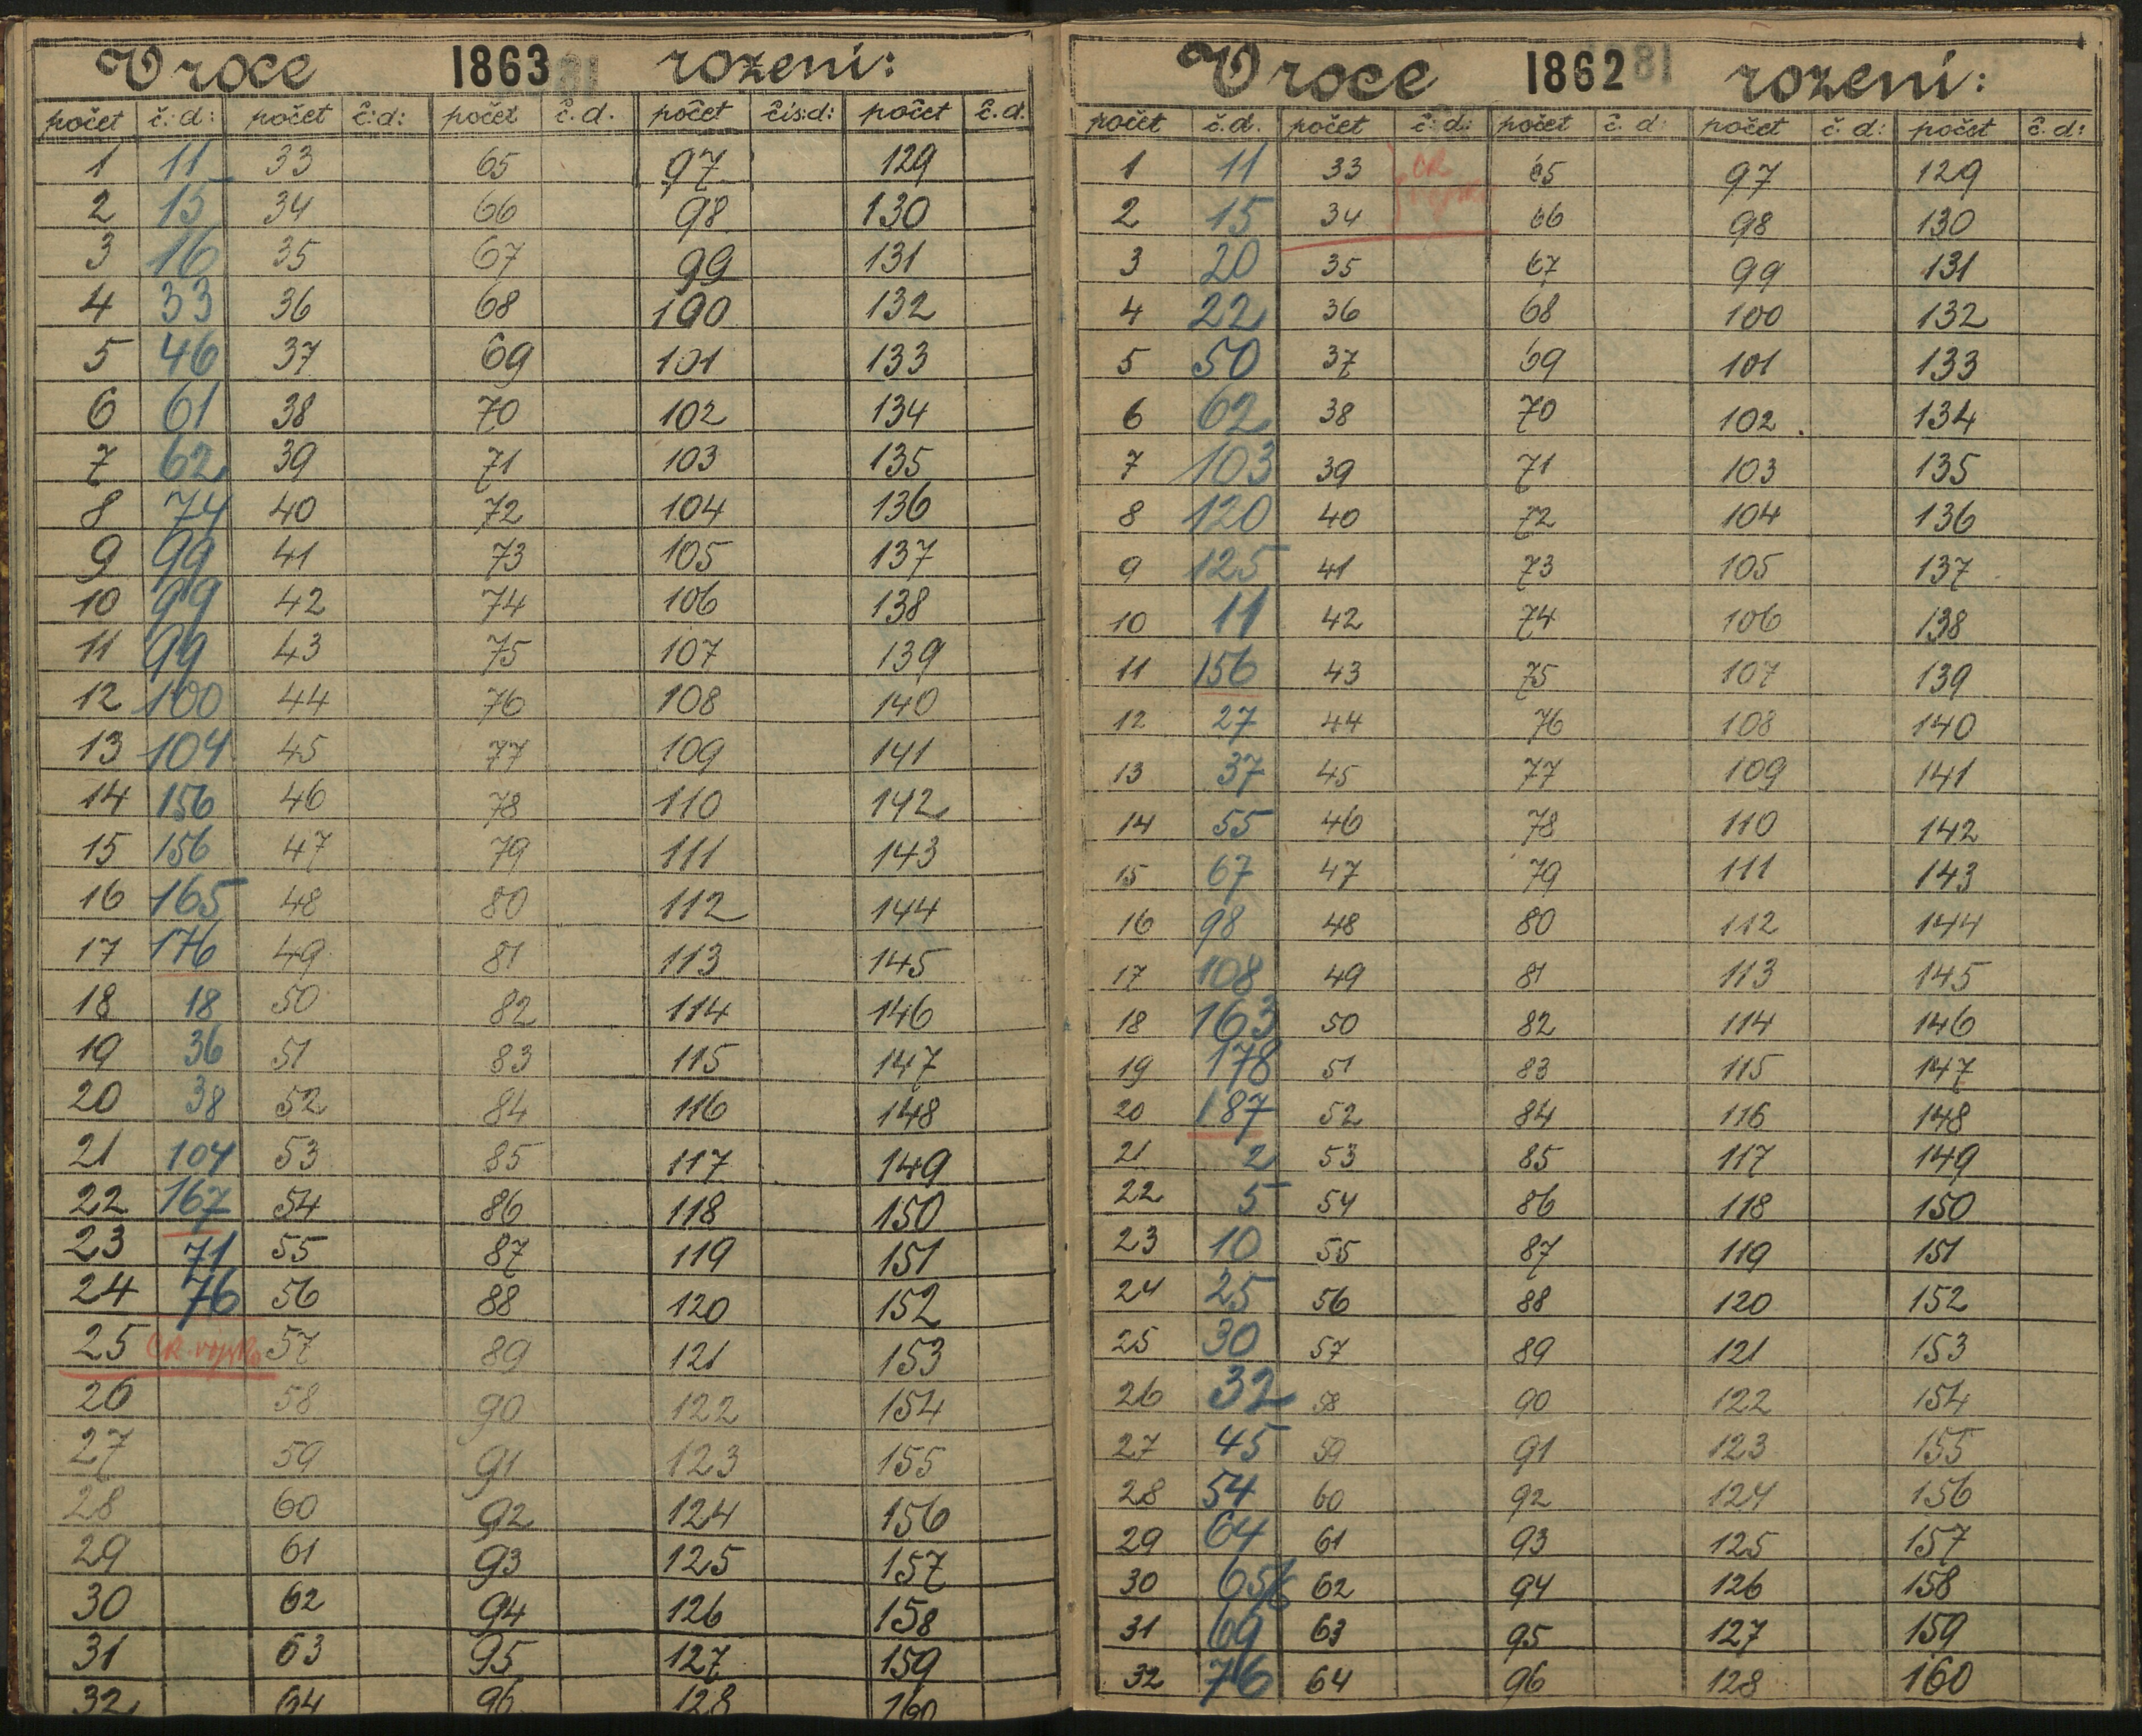 V roce 1863 rození:
počet č.:d: počet č:d: počet č.d. počet čís:d: počet č.d.
1 11 33 65 97 129
2 15 34 66 98 130
3 16 35 67 99 131
4 33 36 68 100 132
5 46 37 69 101 133
6 61 38 70 102 134
7 62 39 71 103 135
8 74 40 72 104 136
9 99 41 73 105 137
10 99 42 74 106 138
11 99 43 75 107 139
12 100 44 76 108 140
13 104 45 77 109 141
14 156 46 78 110 142
15 156 47 79 111 143
16 165 48 80 112 144
17 176 49 81 113 145
18 18 50 82 114 146
19 36 51 83 115 147
20 38 52 84 116 148
21 104 53 85 117 149
22 167 54 86 118 150
23 71 55 87 119 151
24 76 56 88 120 152
25 CR. 57 89 121 153
26 58 90 122 154
27 59 91 123 155
28 60 92 124 156
29 61 93 125 157
30 62 94 126 158
31 63 95 127 159
32 64 96 128 160
V roce 1862 rození:
počet č.d. počet č:d: počet č.d: počet č.d: počet č.d:
1 11 33 CR 65 97 129
2 15 34 66 98 130
3 20 35 67 99 131
4 22 36 68 100 132
5 50 37 69 101 133
6 62 38 70 102 134
7 103 39 71 103 135
8 120 40 72 104 136
9 125 41 73 105 137
10 11 42 74 106 138
11 156 43 75 107 139
12 27 44 76 108 140
13 37 45 77 109 141
14 55 46 78 110 142
15 67 47 79 111 143
16 98 48 80 112 144
17 108 49 81 113 145
18 163 50 82 114 146
19 178 51 83 115 147
20 187 52 84 116 148
21 2 53 85 117 149
22 5 54 86 118 150
23 10 55 87 119 151
24 25 56 88 120 152
25 30 57 89 121 153
26 32 58 90 122 154
27 45 59 91 123 155
28 54 60 92 124 156
29 64 61 93 125 157
30 62 94 126 158
31 69 63 95 127 159
32 76 64 96 128 160